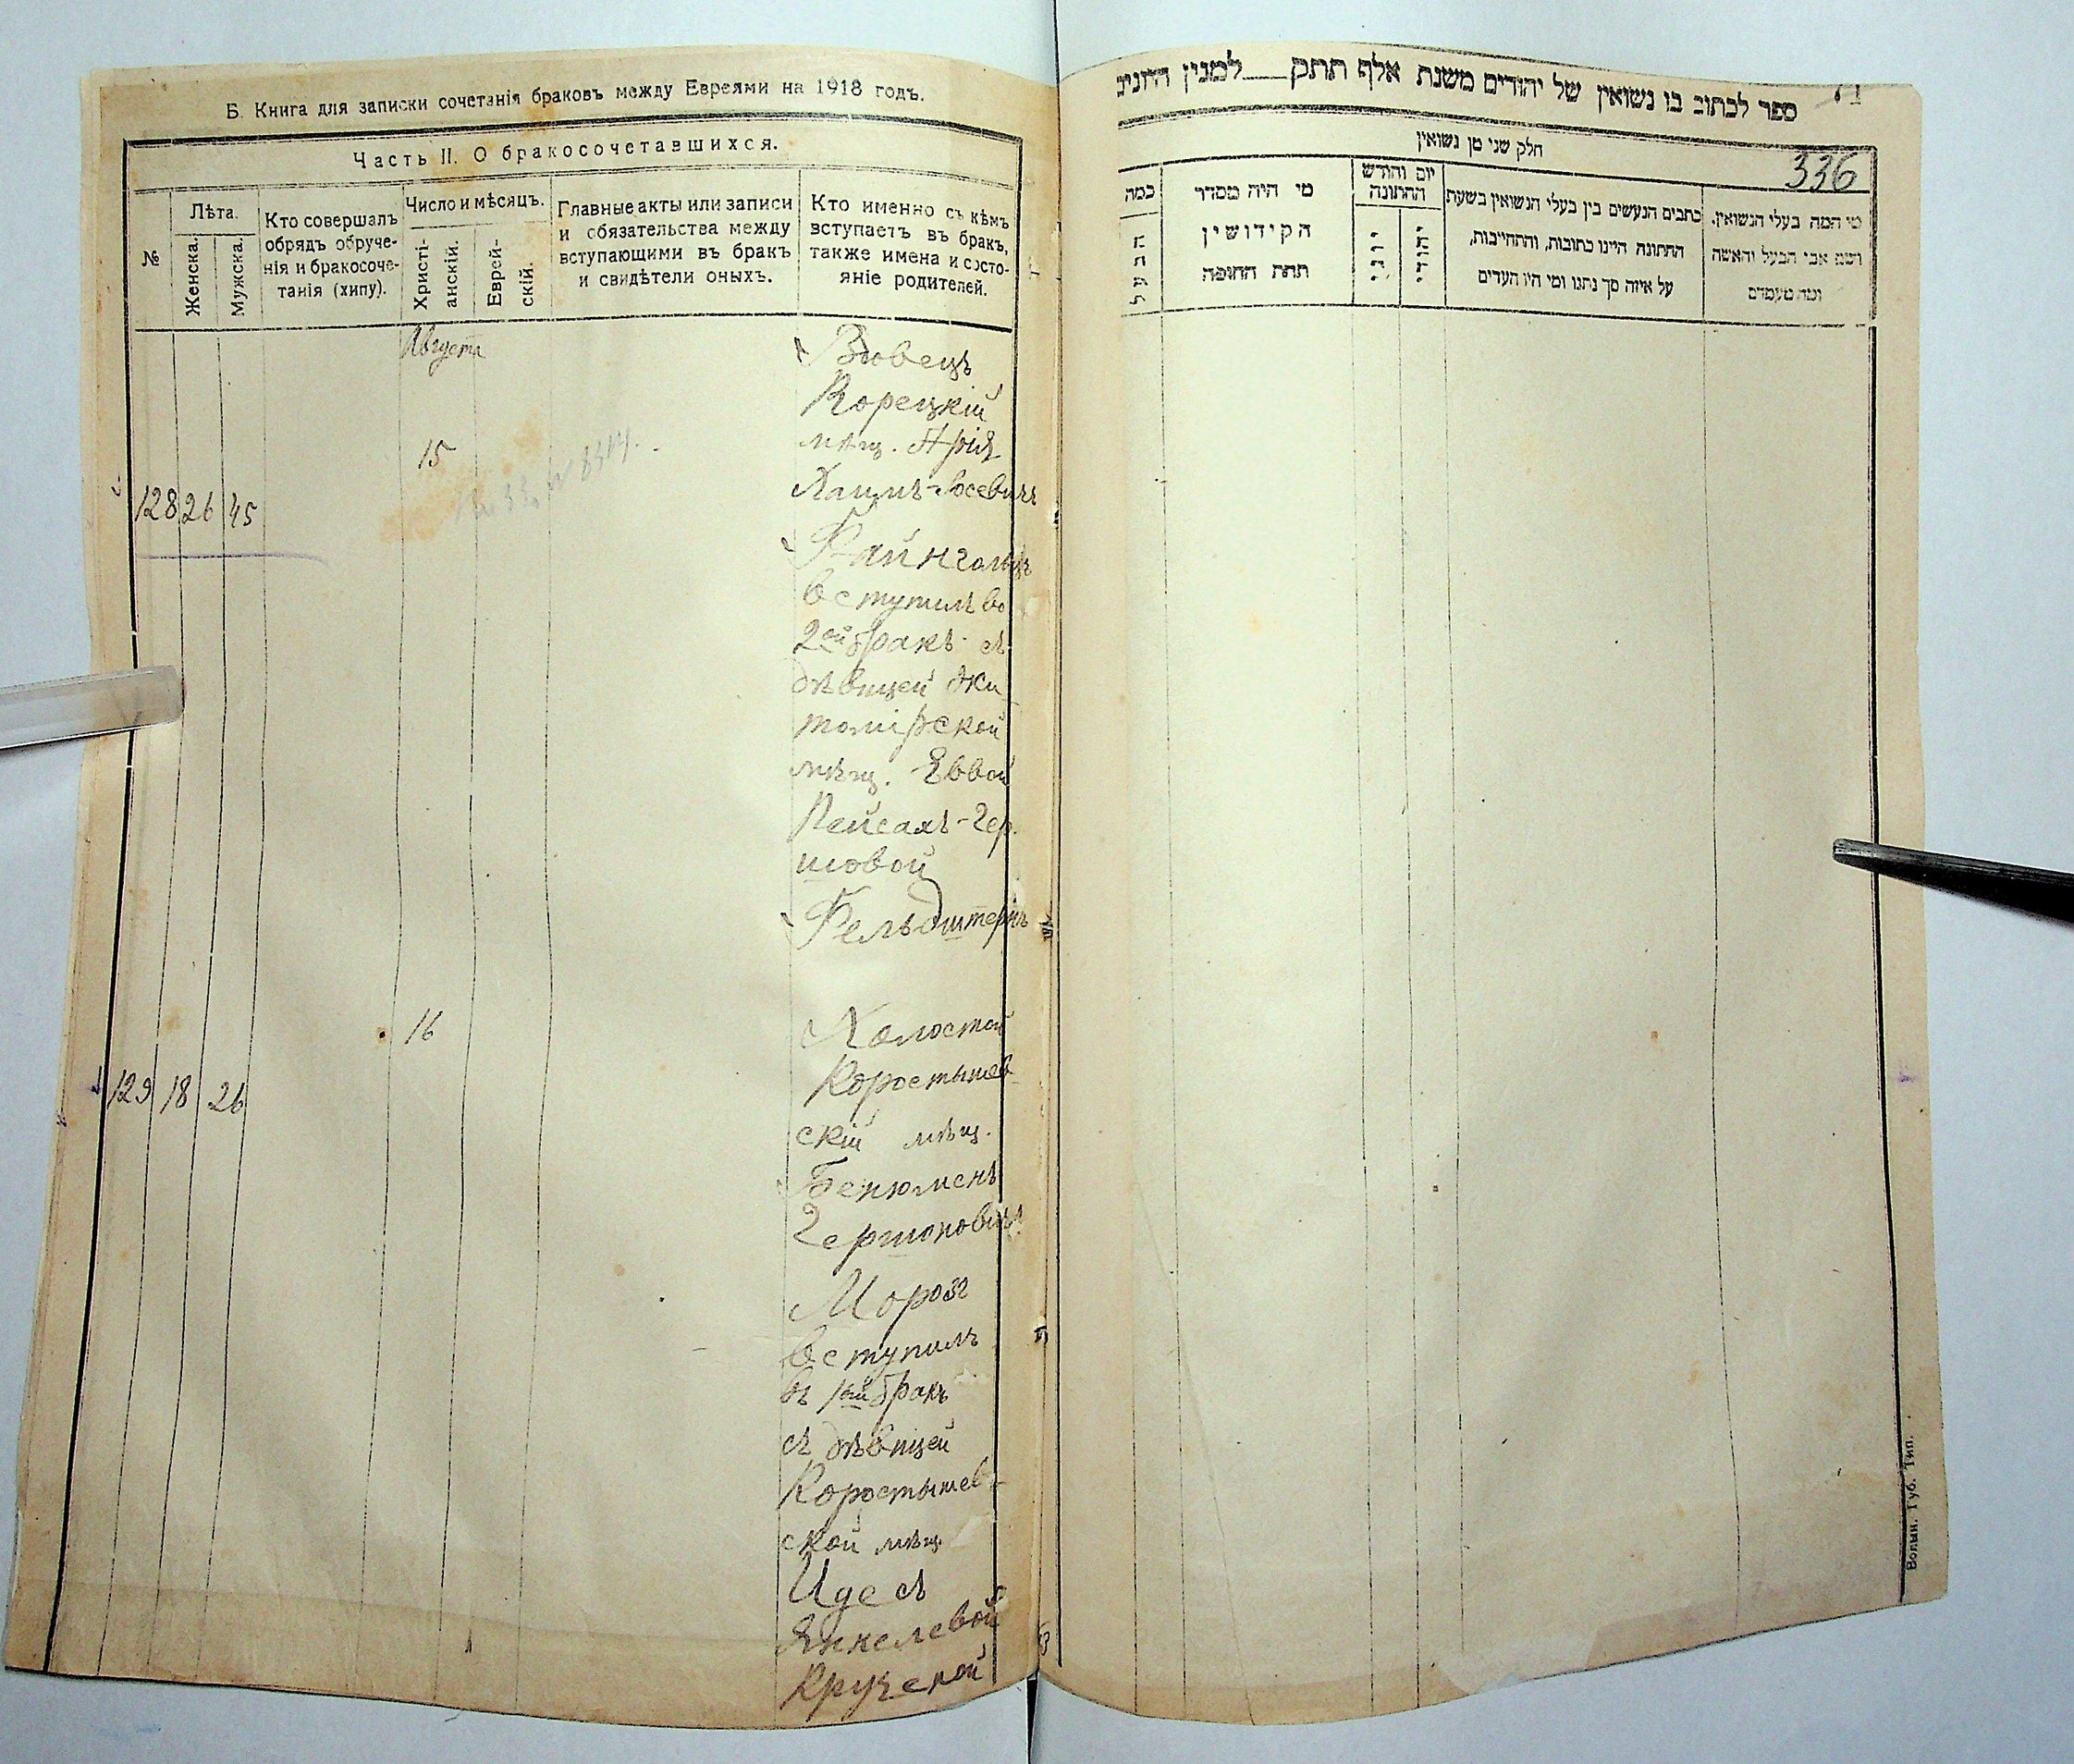 Б. Книга для записки сочетанія браковъ между Евреями на 1918 годъ.
Часть II. О бракосочетавшихся.
№
Лѣта.
Женска.
Мужска.
Кто совершалъ
обрядъ обруче-
нія и бракосоче-
танія (хипу).
Число и мѣсяцъ.
Христі-
анскій.
Еврей-
скій.
Главные акты или записи
и обязательства между
вступающими въ бракъ
и свидѣтели оныхъ.
Кто именно съ кѣмъ
вступаетъ въ бракъ,
также имена и состо-
яніе родителей.
Августа
15
128 26 45
Вдовецъ
Корецкій
мѣщ. Арія
Хаимъ-Іосевичъ
Файнгольцъ
вступилъ во
2ой бракъ съ
дѣвицей Жи
томірской
мѣщ. Еввой
Пейсахъ-Гер
шовой
Фельдштернъ
16
129 18 26
Холостой
Коростышев-
скій мѣщ.
Бенюменъ
Гершоновичъ
Морозъ
вступилъ
въ 1ый бракъ
съ дѣвицей
Коростышев-
ской мѣщ.
Идесъ
Янкелевой
ספר לכתוב בו נשואין של יהודים משנת אלף תתק למנין היוניב
336
חלק שני מן נשואין
מי המה בעלי הנשואין.
ושם אבי הבעל והאשה
ומה מעמדם
כתבים הנעשים בין בעלי הנשואין בשעת
החתונה היינו כתובות, והתחייבות,
על איזה סך נתנו ומי היו העדים
יום וחודש
החתונה
יהודי
יוני
מי היה מסדר
הקידושין
תחת החופה
כמה
הבעל
Волын. Губ. Тип.